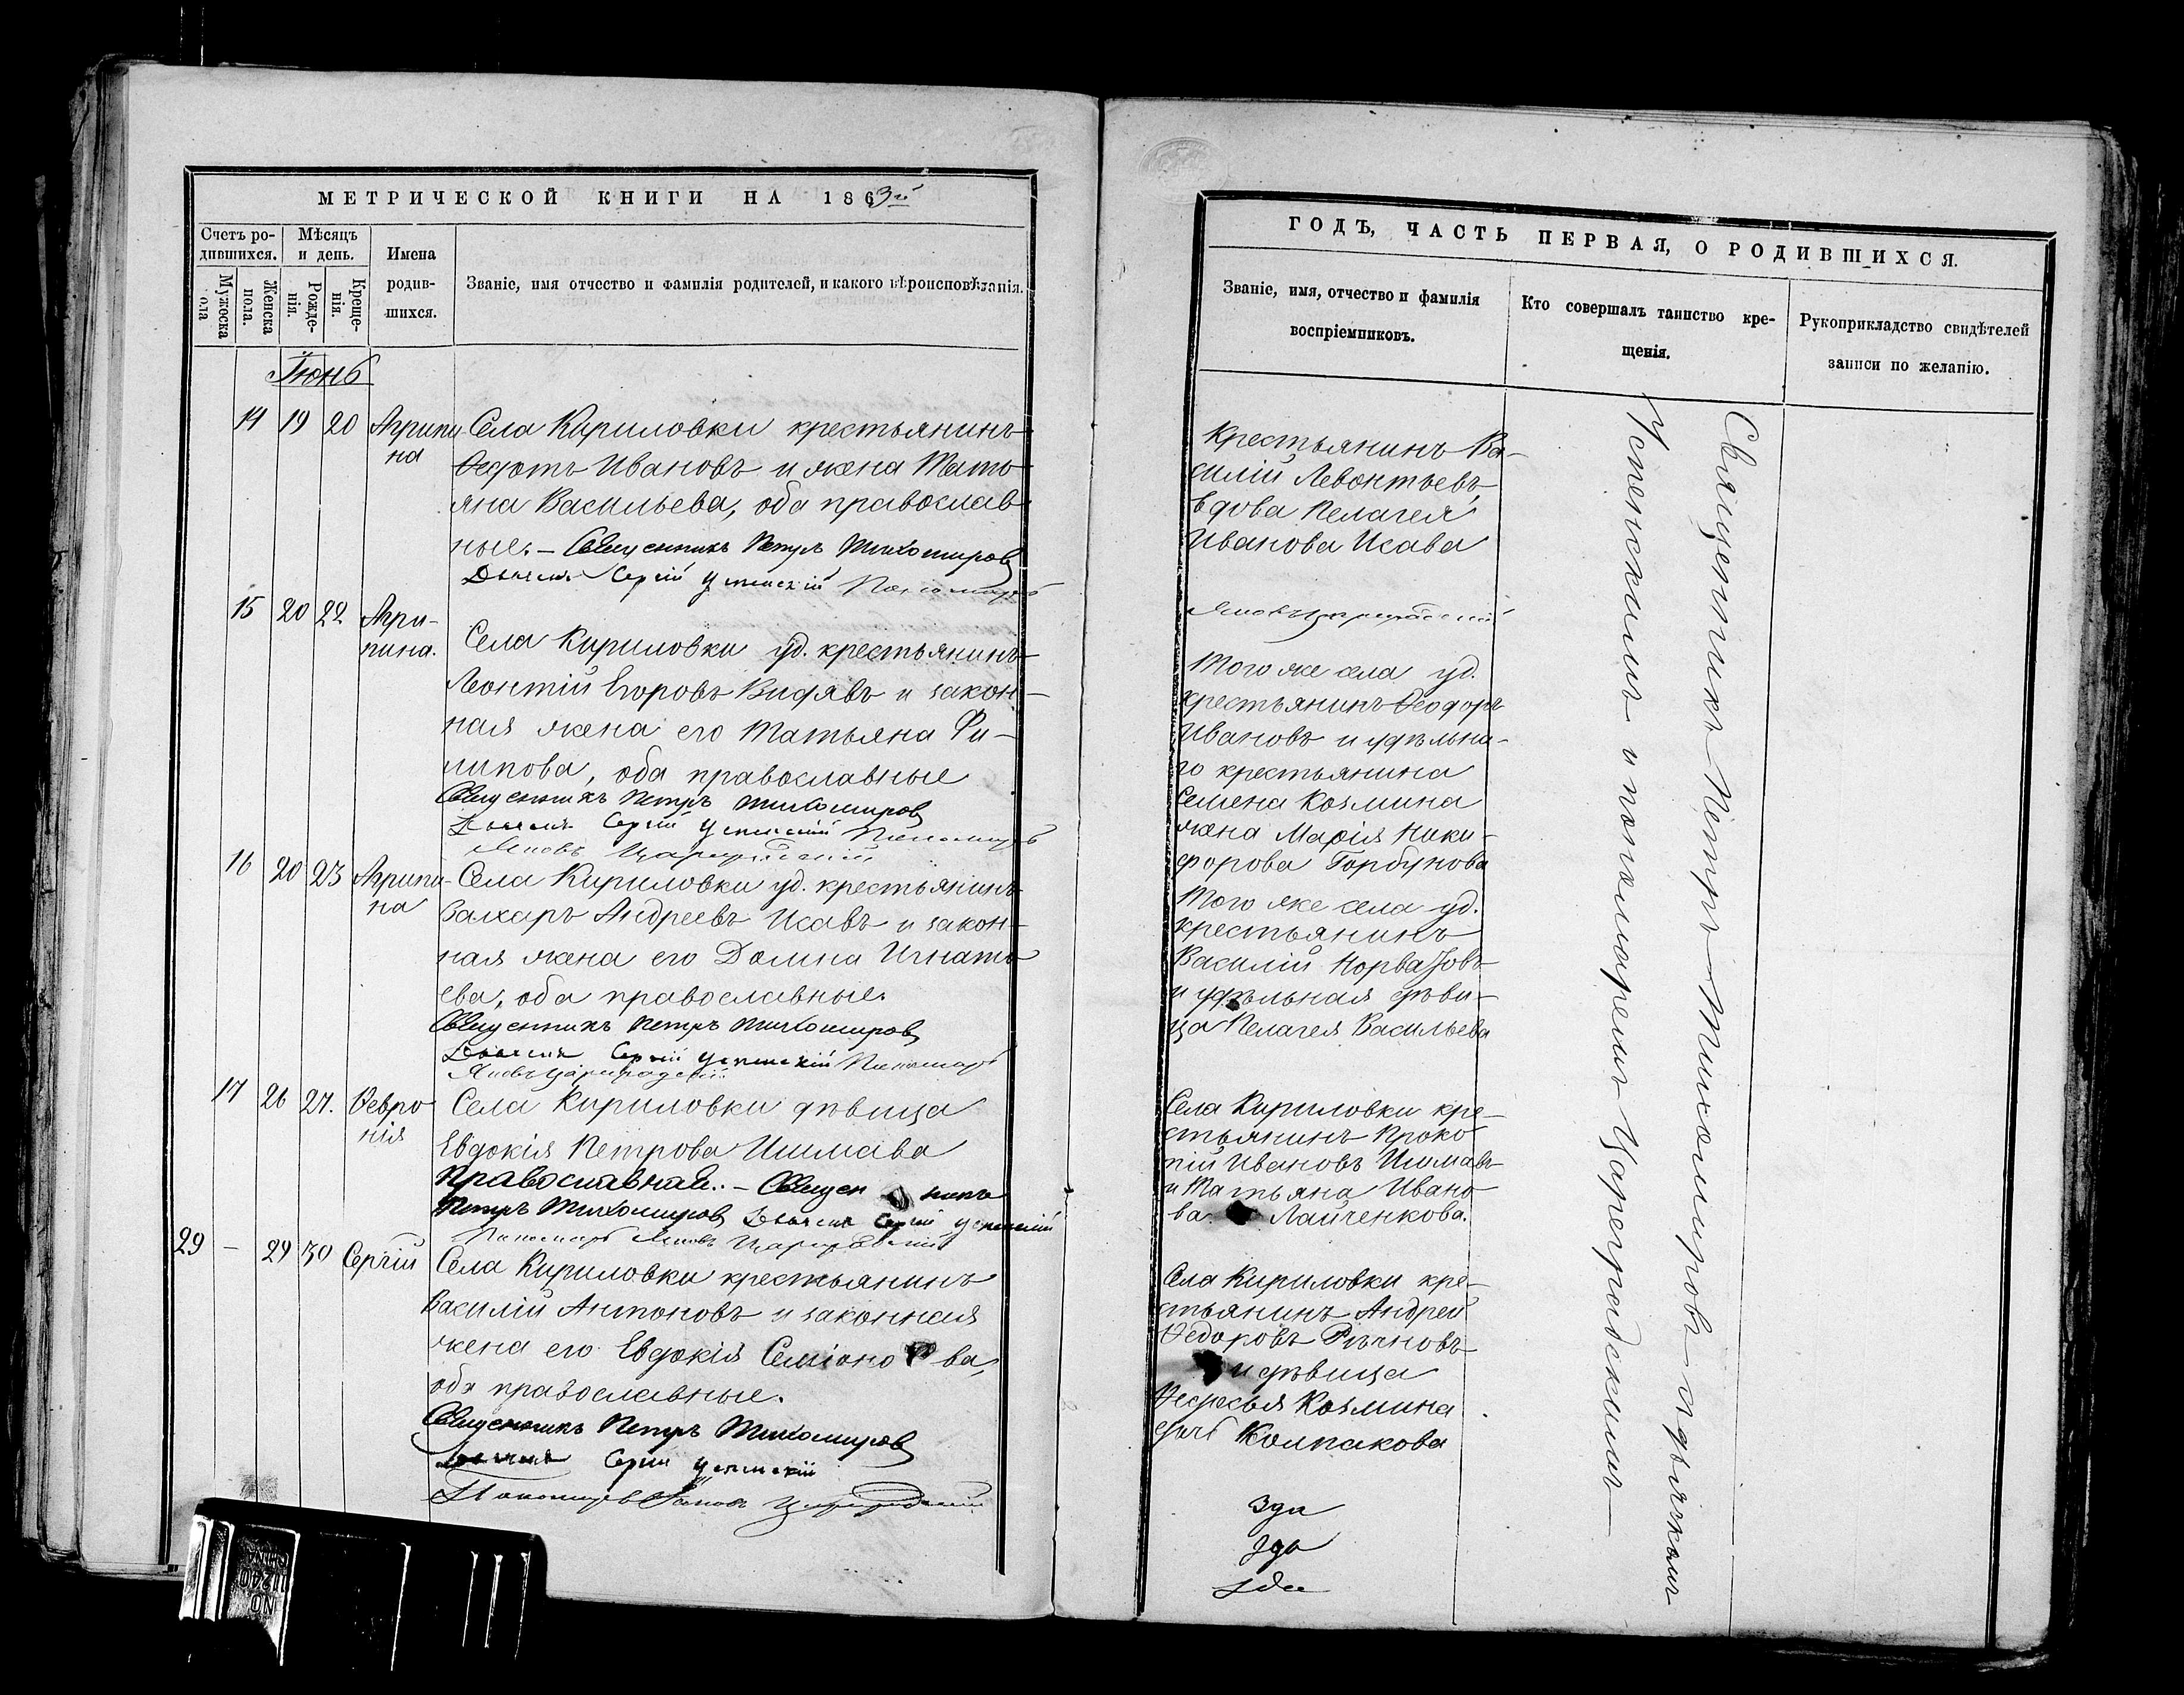 МЕТРИЧЕСКОЙ КНИГИ НА 1863й
Счетъ ро-
дившихся.
Мѣсяцъ
и день.
Имена
родив-
шихся.
Званіе, имя отчество и фамилія родителей, и какого вѣроисповѣданія.
Мужеска
пола
Женска
пола.
Рожде-
нія.
Креще-
нія.
Іюнь
14 19 20 Агрипи
на
Села Кириловки крестьянинъ
Ѳедотъ Ивановъ и жена Тать
яна Васильева, оба православ
ные. – Священникъ Петръ Тихомировъ
Дьячекъ Сергій Успенскій Пономарь
15 20 22 Агри-
пина.
Села Кириловки уд. крестьянинъ
Леонтій Егоровъ Видявъ и закон-
ная жена его Татьяна Фи-
липова, оба православные
Священникъ Петръ Тихомировъ
Дьячекъ Сергій Успенскій Пономарь
Яковъ Цареградскій
16 20 23 Агрипи-
на
Села Кириловки уд. крестьянинъ
Захаръ Андреевъ Исавъ и закон-
ная жена его Домна Игнать
ева, оба православные.
Священникъ Петръ Тихомировъ
Дьячекъ Сергій Успенскій Пономарь
Яковъ Цареградскій
17 26 27. Ѳевро
нія
Села Кириловки дѣвица
Евдокія Петрова Ишмава
Православная. – Священникъ
Петръ Тихомировъ Дьячекъ Сергій Успенскій
Пономарь Яковъ Цареградскій
29 – 29 30 Сергій
Села Кириловки крестьянинъ
Василій Антоновъ и законная
жена его Евдокія Семіонова,
оба православные.
Священникъ Петръ Тихомировъ
Дьячекъ Сергій Успенскій
Пономарь Яковъ Цареградскій
ГОДЪ, ЧАСТЬ ПЕРВАЯ, О РОДИВШИХСЯ.
Званіе, имя, отчество и фамилія
воспріемниковъ.
Кто совершалъ таинство кре-
щенія.
Рукоприкладство свидѣтелей
записи по желанію.
Крестьянинъ Ва-
силій Левонтьевъ,
вдова Пелагея
Иванова Исава
Яковъ Цареградскій
Того же села уд.
крестьянинъ Ѳеодоръ
Ивановъ и удѣльна-
го крестьянина
Семена Козмина
жена Марія Ники-
форова Горбунова
Того же села уд.
крестьянинъ
Василій
и удѣльная дѣви-
ца Пелагея Васильева
Села Кириловки кре-
стьянинъ Проко
пій Ивановъ Ишмавъ
и Татьяна Ивано-
ва Лайченкова.
Села Кириловки кре-
стьянинъ Андрей
Ѳедоровъ
и дѣвица
Козмина
Колпакова
Священникъ Петръ Тихомировъ и дьячкомъ
Успенскимъ и пономаремъ Цареградскимъ